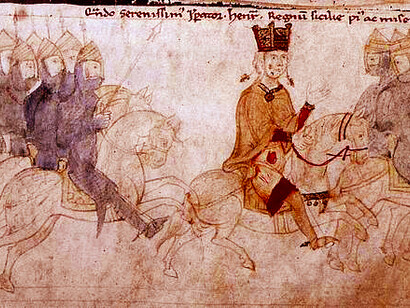 Qũdo serenissim' Ip̃ator henr' Regnũ sicilie pi' ac miso